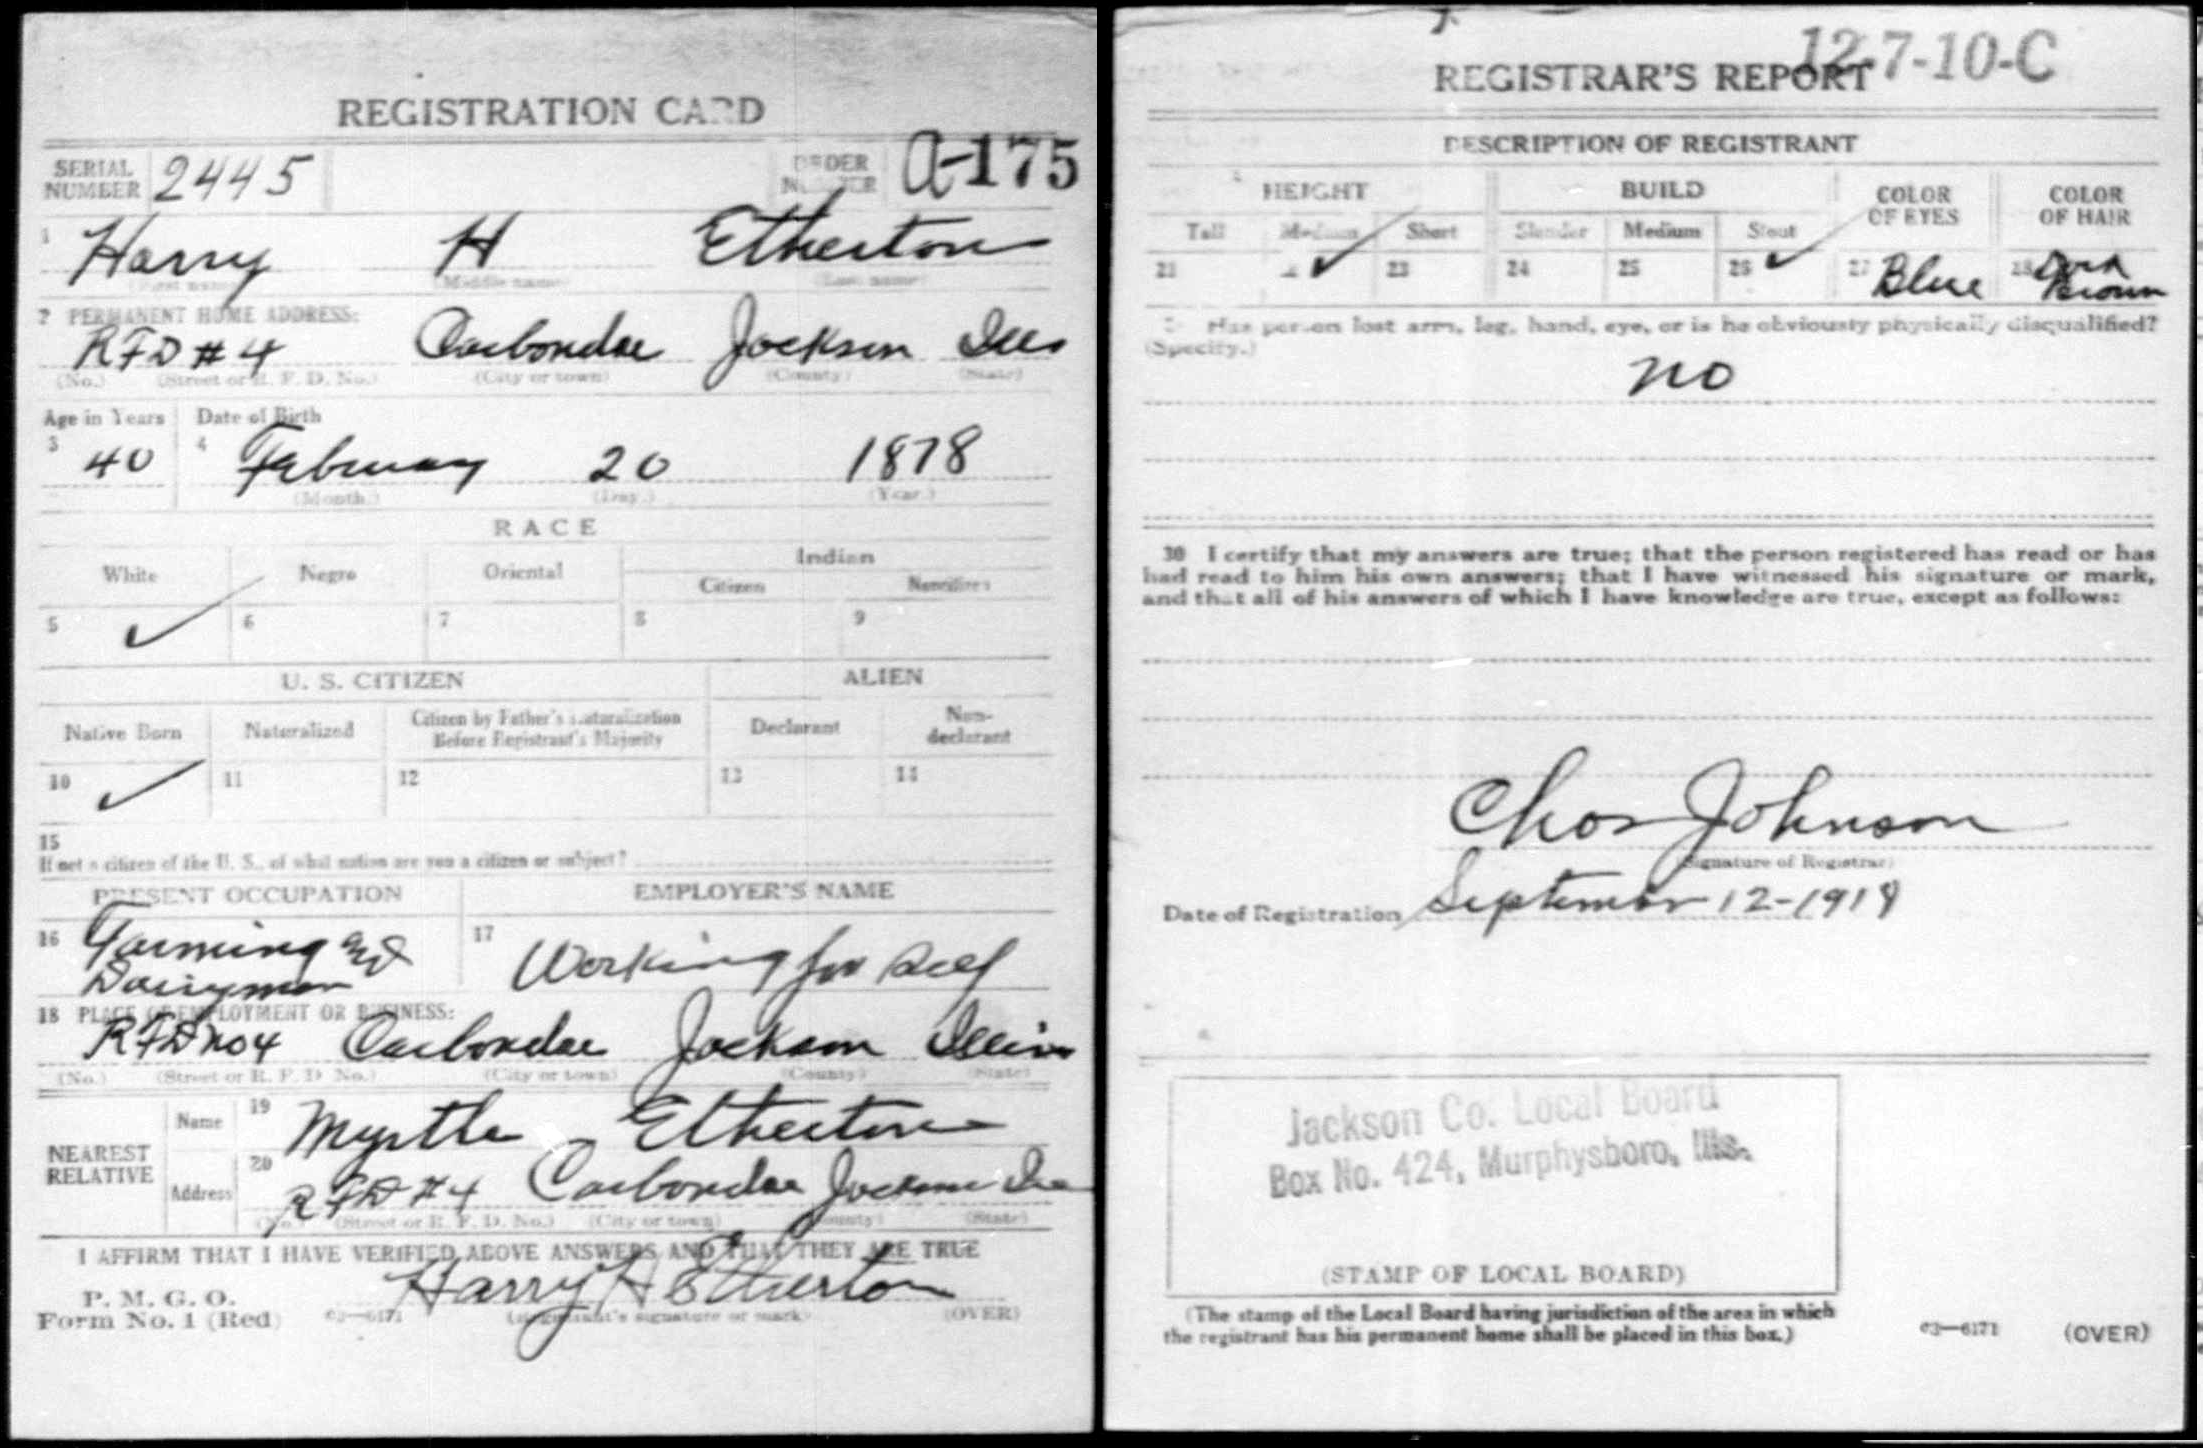 REGISTRATION CARD
SERIAL NUMBER 2445 ORDER NUMBER A-175
1 Harry H Etherton
(First name) (Middle name) (Last name)
2 PERMANENT HOME ADDRESS:
RFD #4 Carbondale Jackson Ills
(No.) (Street or R. F. D. No.) (City or town) (County) (State)
Age in Years Date of Birth
3 40 4 February 20 1878
(Month.) (Day.) (Year.)
RACE
White Negro Oriental Indian
Citizen Noncitizen
5 ✓ 6 7 8 9
U. S. CITIZEN ALIEN
Native Born Naturalized Citizen by Father's Naturalization Before Registrant's Majority Declarant Non-declarant
10 ✓ 11 12 13 14
15
If not a citizen of the U. S., of what nation are you a citizen or subject?
PRESENT OCCUPATION EMPLOYER'S NAME
16 Farming and Dairyman 17 Working for Self
18 PLACE OF EMPLOYMENT OR BUSINESS:
RFD No 4 Carbondale Jackson Illinois
(No.) (Street or R. F. D. No.) (City or town) (County) (State)
NEAREST RELATIVE
Name 19 Myrtle Etherton
Address 20 RFD #4 Carbondale Jackson Ills
(No.) (Street or R. F. D. No.) (City or town) (County) (State)
I AFFIRM THAT I HAVE VERIFIED ABOVE ANSWERS AND THAT THEY ARE TRUE
P. M. G. O.
Form No. 1 (Red) 03—6171 Harry H Etherton
(Registrant's signature or mark) (OVER)
12-7-10-C
REGISTRAR'S REPORT
DESCRIPTION OF REGISTRANT
HEIGHT BUILD COLOR OF EYES COLOR OF HAIR
Tall Medium Short Slender Medium Stout
21 22 ✓ 23 24 25 26 ✓ 27 Blue 28 Dark Brown
29 Has person lost arm, leg, hand, eye, or is he obviously physically disqualified?
(Specify.)
no
30 I certify that my answers are true; that the person registered has read or has
had read to him his own answers; that I have witnessed his signature or mark,
and that all of his answers of which I have knowledge are true, except as follows:
Chas Johnson
(Signature of Registrar)
Date of Registration September 12-1918
Jackson Co. Local Board
Box No. 424, Murphysboro, Ills.
(STAMP OF LOCAL BOARD)
(The stamp of the Local Board having jurisdiction of the area in which
the registrant has his permanent home shall be placed in this box.)
03—6171 (OVER)